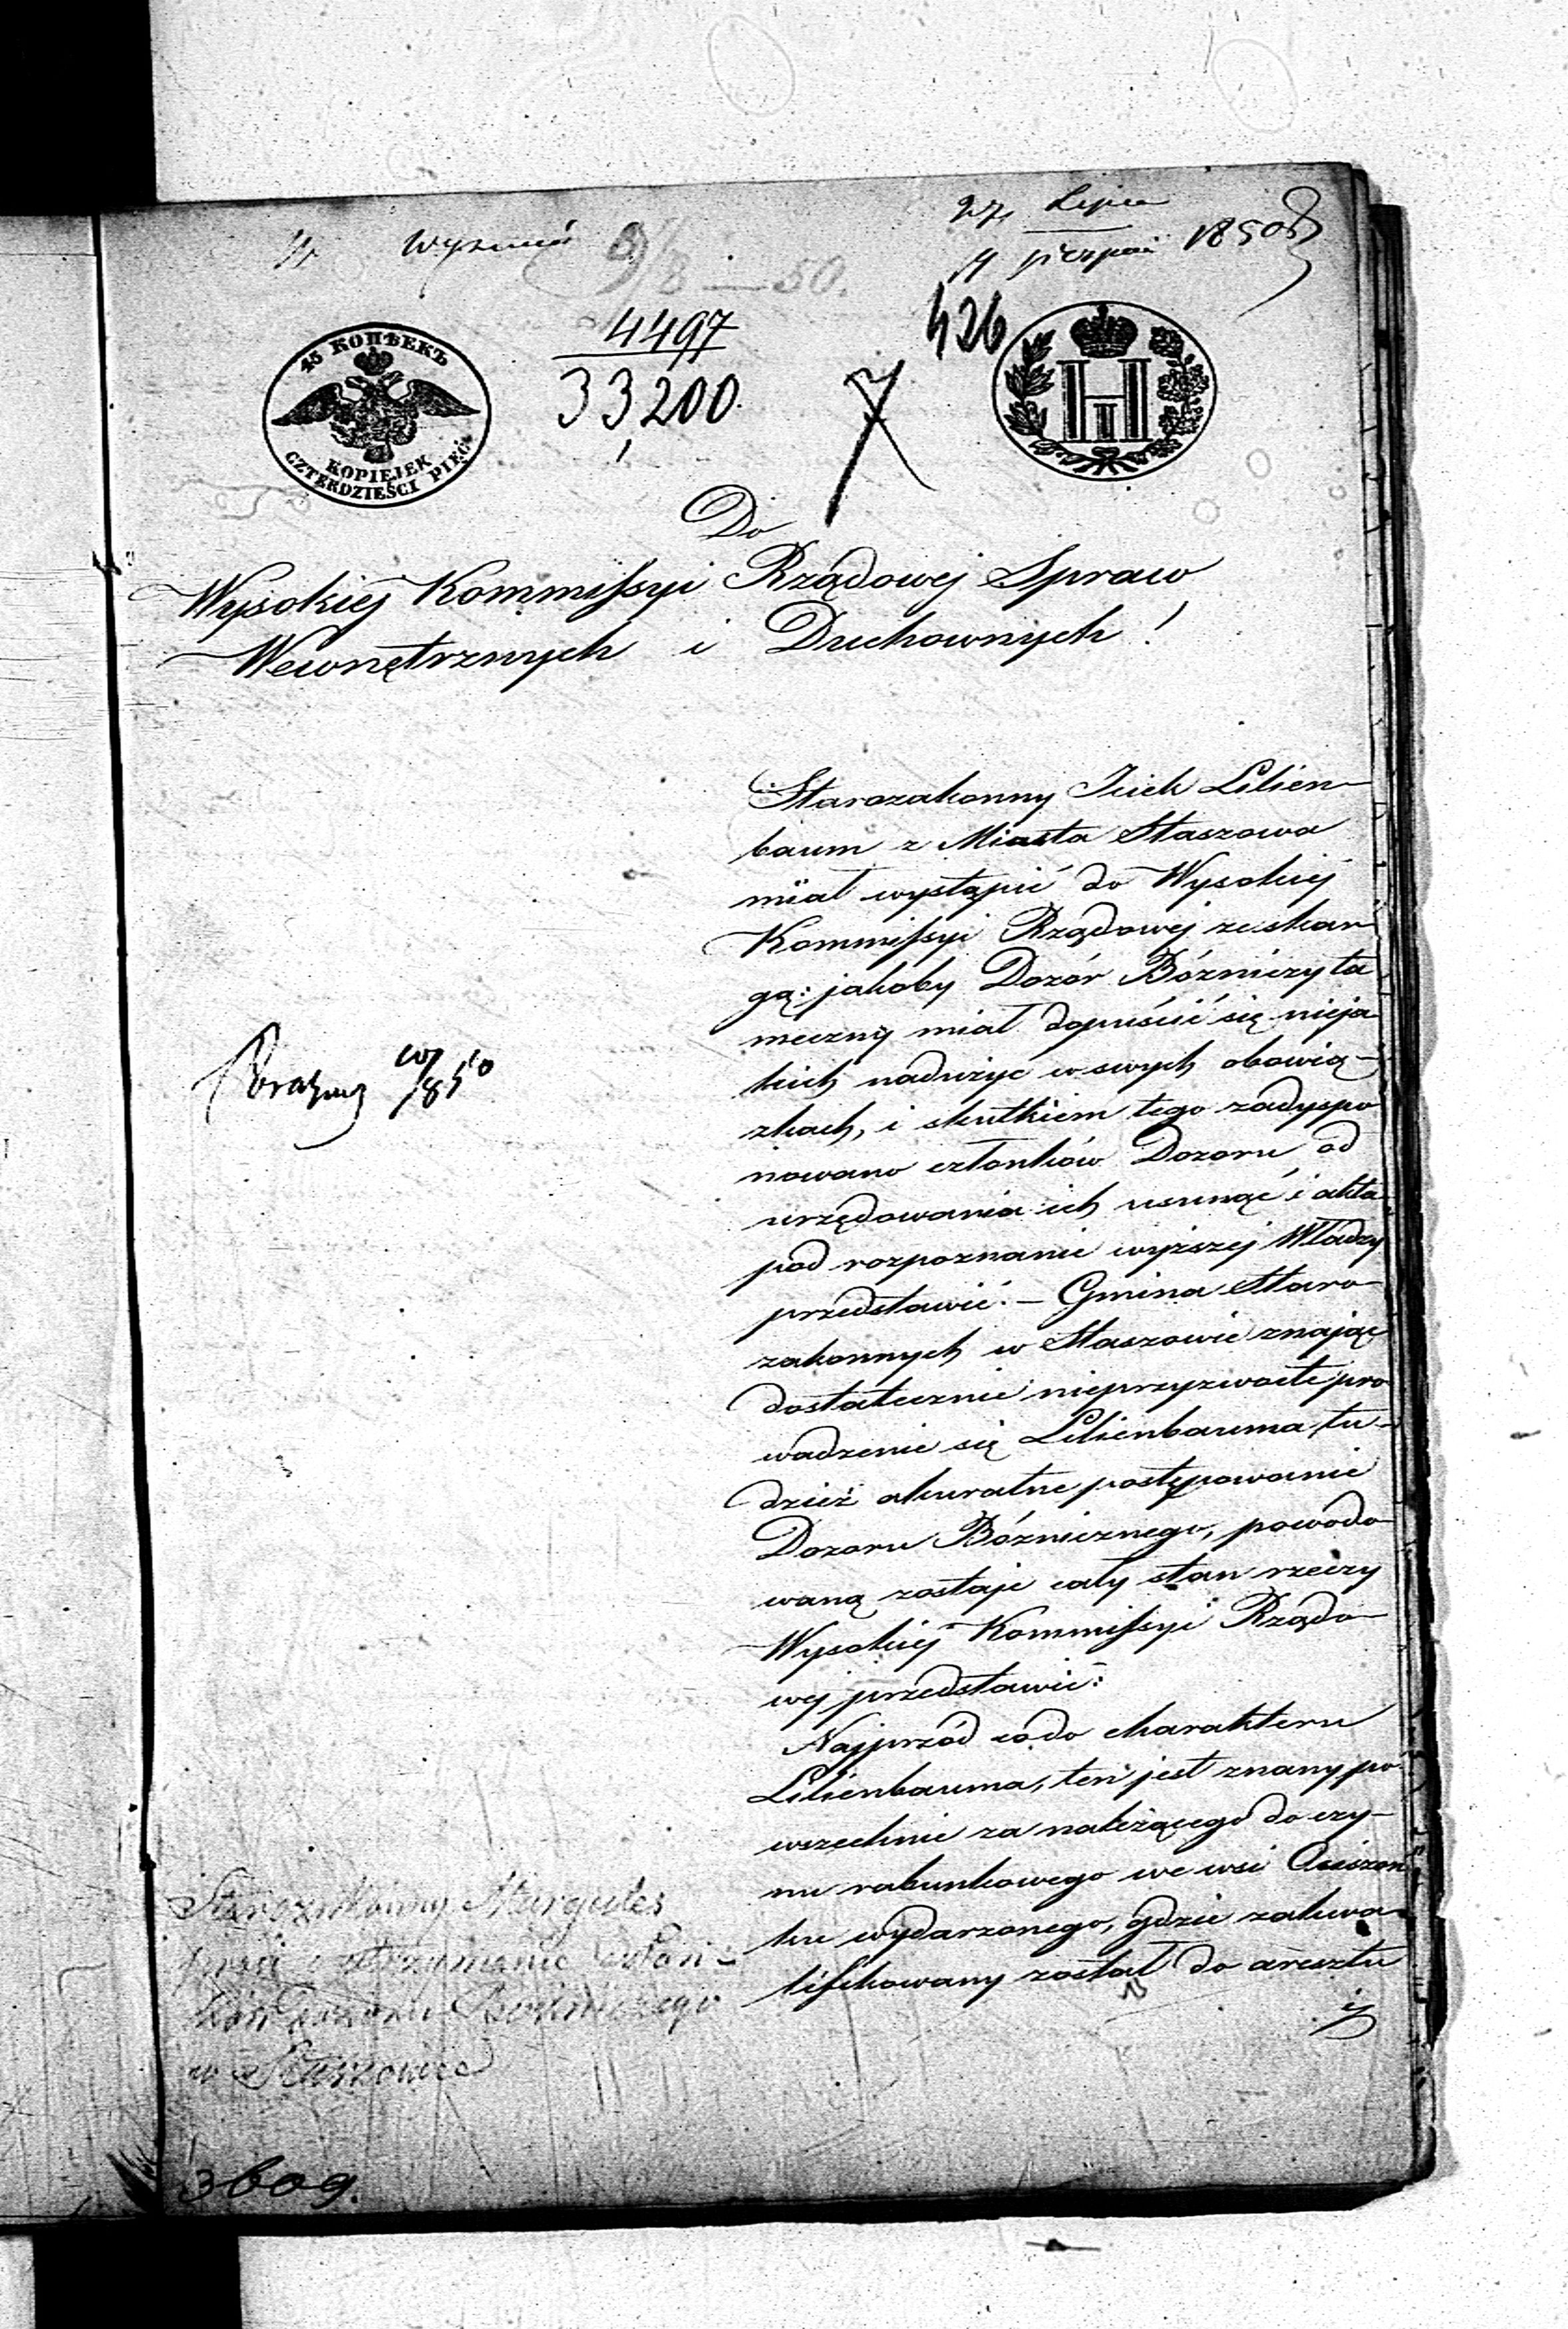 27 Lipca
9 Sierpnia 1850
9/8 — 50.
4497
33,200.
426
45 КОПѢЕКЪ
KOPIEJEK
CZTERDZIEŚCI PIĘĆ
Н I
Do
Wysokiéj Kommissyi Rządowéj Spraw
Wewnętrznych i Duchownych!
Starozakonny Icek Lilien-
baum z Miasta Staszowa
miał wystąpić do Wysokiéj
Kommissyi Rządowéj ze skar-
gą: jakoby Dozór Bóżniczy ta
meczny miał dopuścić się nieja
kich nadużyc w swych obowią-
zkach, i skutkiem tego zadyspo
nowano członków Dozoru od
urzędowania ich usunąć i akta
pod rozpoznanie wyższéj Władzy
przedstawić. — Gmina Staro-
zakonnych w Staszowie znając
dostatecznie nieprzyzwoite pro
wadzenie się Lilienbauma tu-
dzież akuratne postępowanie
Dozoru Bóżnicznego, powodo
waną zostaje cały stan rzeczy
Wysokiéj Kommissyi Rządo-
wéj przedstawić:
Najprzód co do charakteru
Lilienbauma, ten jest znany po-
wszechnie za należącego do czy-
nu rabunkowego we wsi
ku wydarzonego, gdzie zakwa-
lifikowany został do aresztu
iż
1850
Starozakonny Margules
prosi o utrzymanie człon-
ków Dozoru Bożniczego
w Staszowie
3609.